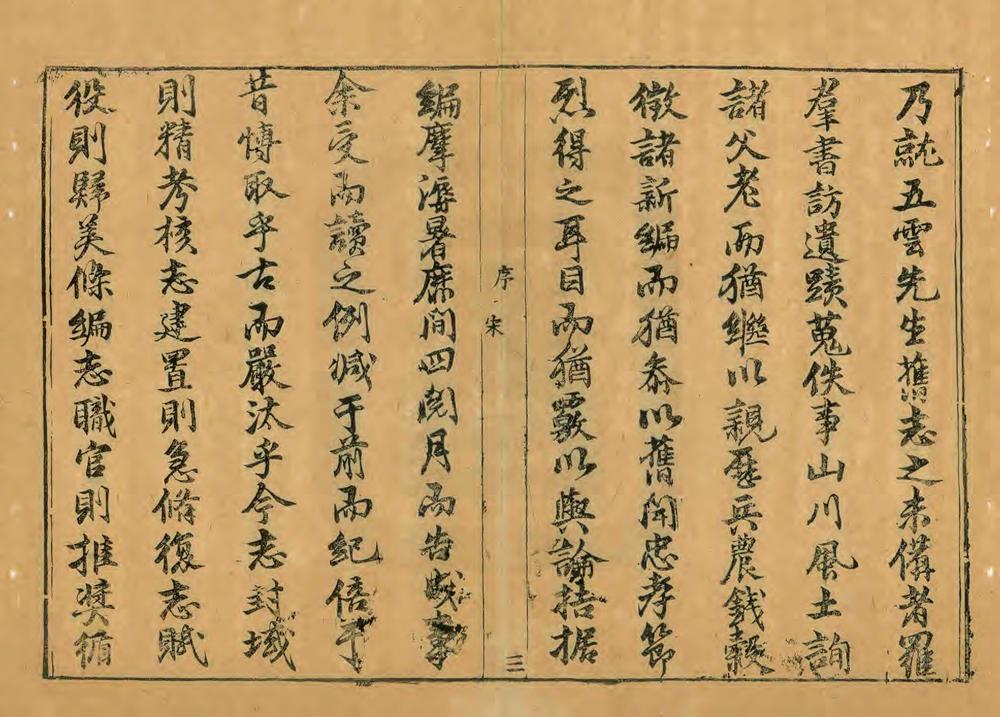 乃就五雲先生舊志之未備者羅
羣書訪遺蹟蒐佚事山川風土詢
諸父老而猶繼以親歷兵農錢穀
徵諸新編而猶叅以舊聞忠孝節
烈得之耳目而猶覈以輿論拮据
序 宋
三
編摩溽暑靡間四閱月而告竣事
余受而讀之例減于前而紀倍于
昔慱取乎古而嚴汰乎今志封域
則精考核志建置則急脩復志賦
役則歸美條編志職官則推獎循